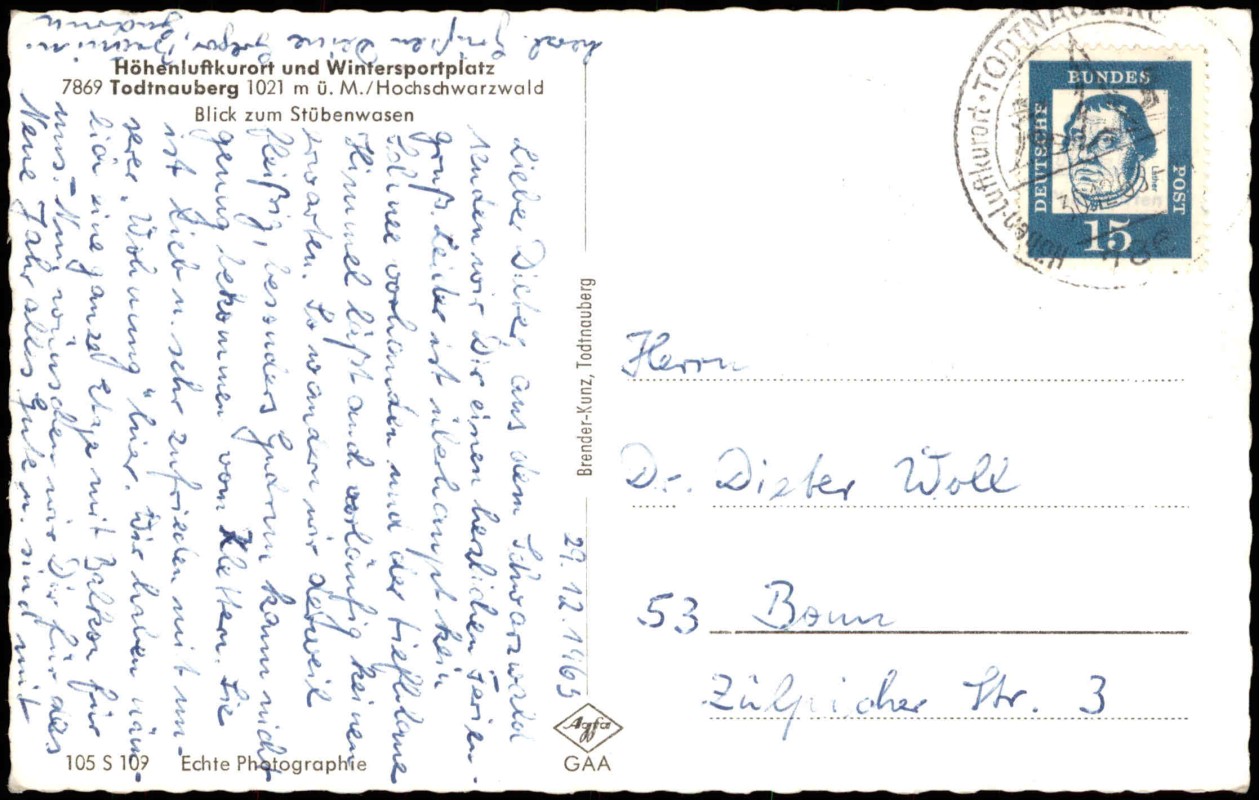 Höhenluftkurort und Wintersportplatz
7869 Todtnauberg 1021 m ü. M./Hochschwarzwald
Blick zum Stübenwasen
29.12.1963
Lieber Dieter, aus dem Schwarzwald
senden wir Dir einen herzlichen Ferien-
gruß. Leider ist überhaupt kein
Schnee vorhanden und der tiefblaue
Himmel läßt auch vorläufig keinen
erwarten. So wandern wir derweil
fleißig, besonders Gudrun kann nicht
genug bekommen von Klettern. Sie
ist lieb u. sehr zufrieden mit un-
serer "Wohnung" hier. Wir haben näm-
lich eine ganze Etage mit Balkon für
uns. – Nun wünschen wir Dir für das
Neue Jahr alles Gute u. sind mit
herzl. Grüßen Deine
Gudrun
Brender-Kunz, Todtnauberg
Agfa
GAA
105 S 109 Echte Photographie
Höhen-Luftkurort · TODTNAUBERG
DEUTSCHE BUNDESPOST
Luther
15
Herrn
Dr. Dieter Woll
53 Bonn
Zülpicher Str. 3